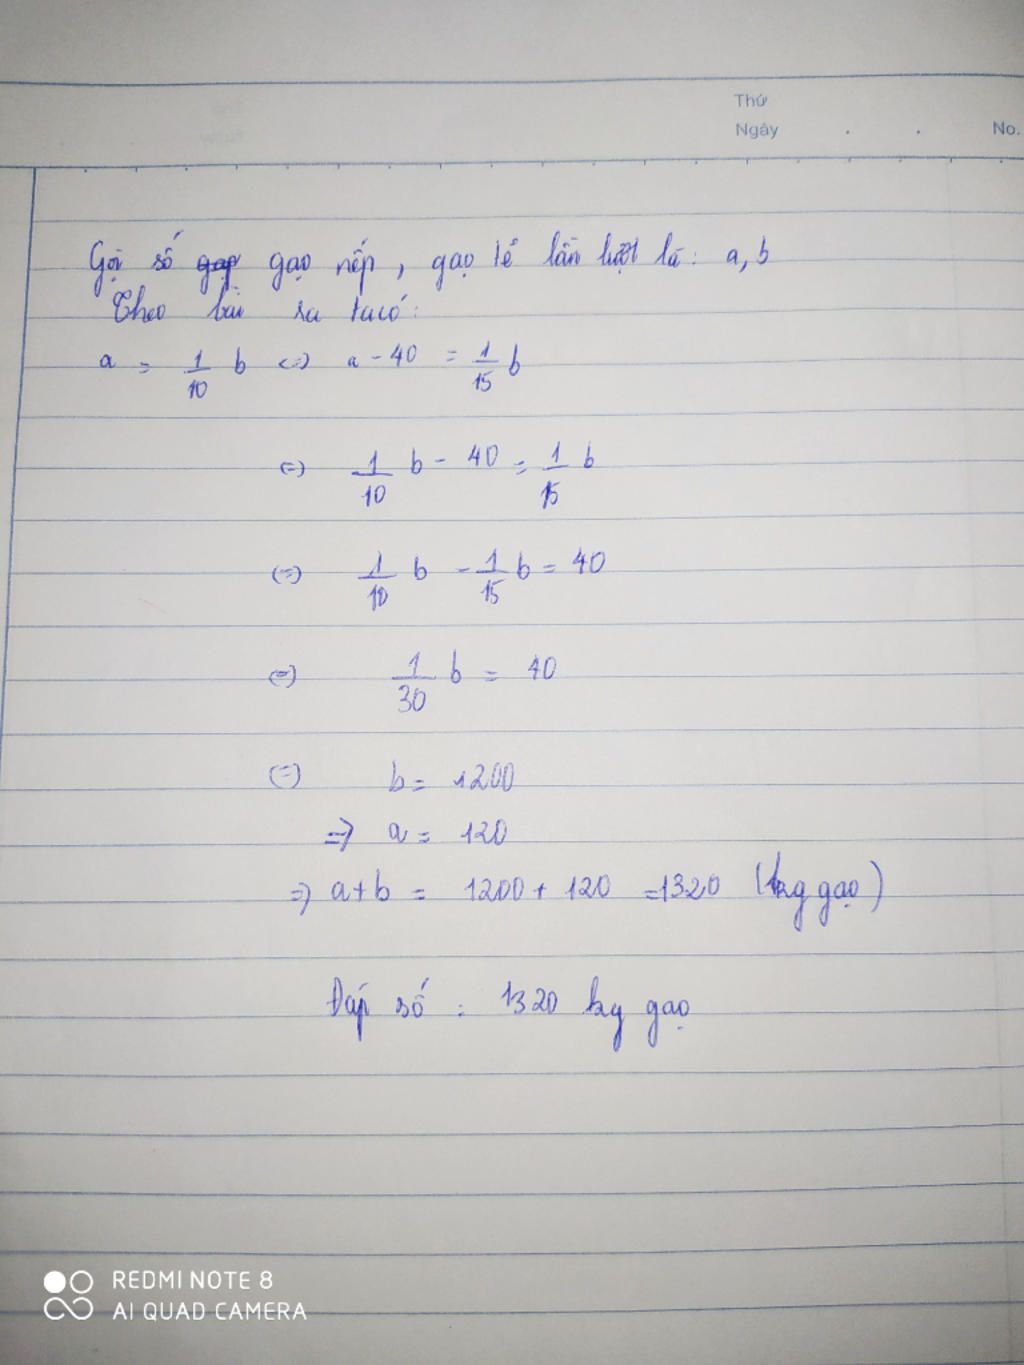 Thứ
Ngày . . No.
Gọi số gạo gạo nếp, gạo tẻ lần lượt là: a, b
Theo bài ra ta có:
a = 1/10 b <=> a - 40 = 1/15 b
<=> 1/10 b - 40 = 1/15 b
<=> 1/10 b - 1/15 b = 40
<=> 1/30 b = 40
<=> b = 1200
=> a = 120
=> a + b = 1200 + 120 = 1320 (kg gạo)
Đáp số : 1320 kg gạo
REDMI NOTE 8
AI QUAD CAMERA